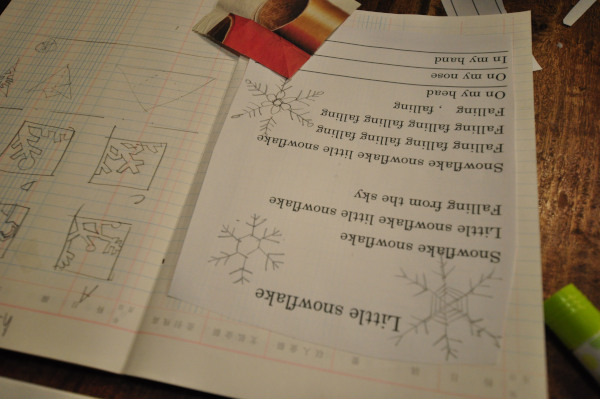 Little snowflake
Snowflake snowflake
Little snowflake
Little little snowflake
Falling from the sky
Snowflake little snowflake
Falling falling falling falling
Falling falling falling falling
Falling , falling
On my head
On my nose
In my hand